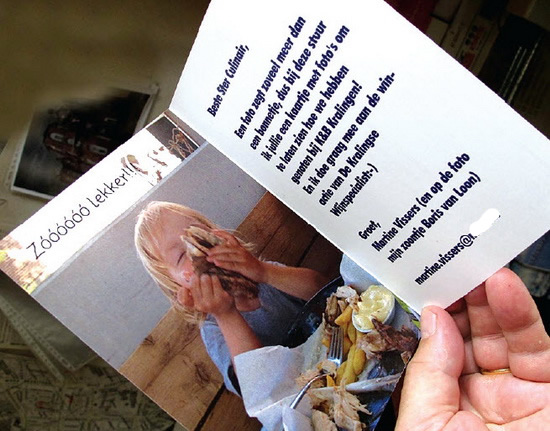 Zóóóóóó Lekker!!
Beste Ster Culinair,
Een foto zegt zoveel meer dan
een bonnetje, dus bij deze stuur
ik jullie een kaartje met foto's om
te laten zien hoe we hebben
genoten bij K&B Kralingen!
En ik doe graag mee aan de win-
actie van De Kralingse
Wijnspecialist:-)
Groet,
Martine Vissers (en op de foto
mijn zoontje Boris van Loon)
martine.vissers@